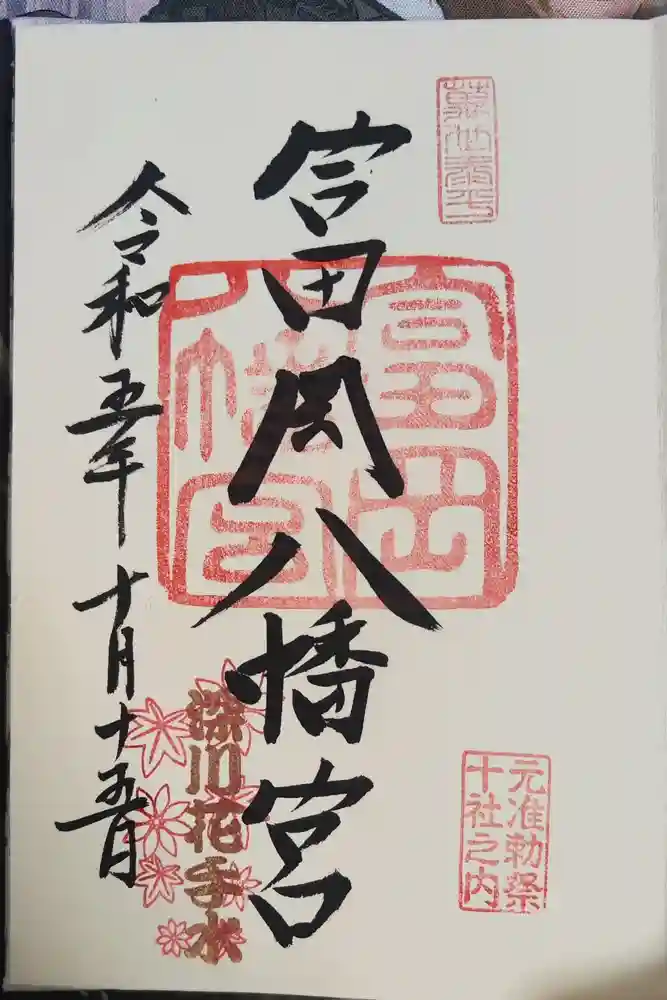 元准勅祭
十社之内
富岡八幡宮
富岡
八幡宮
深川花手水
令和五年十月十五日